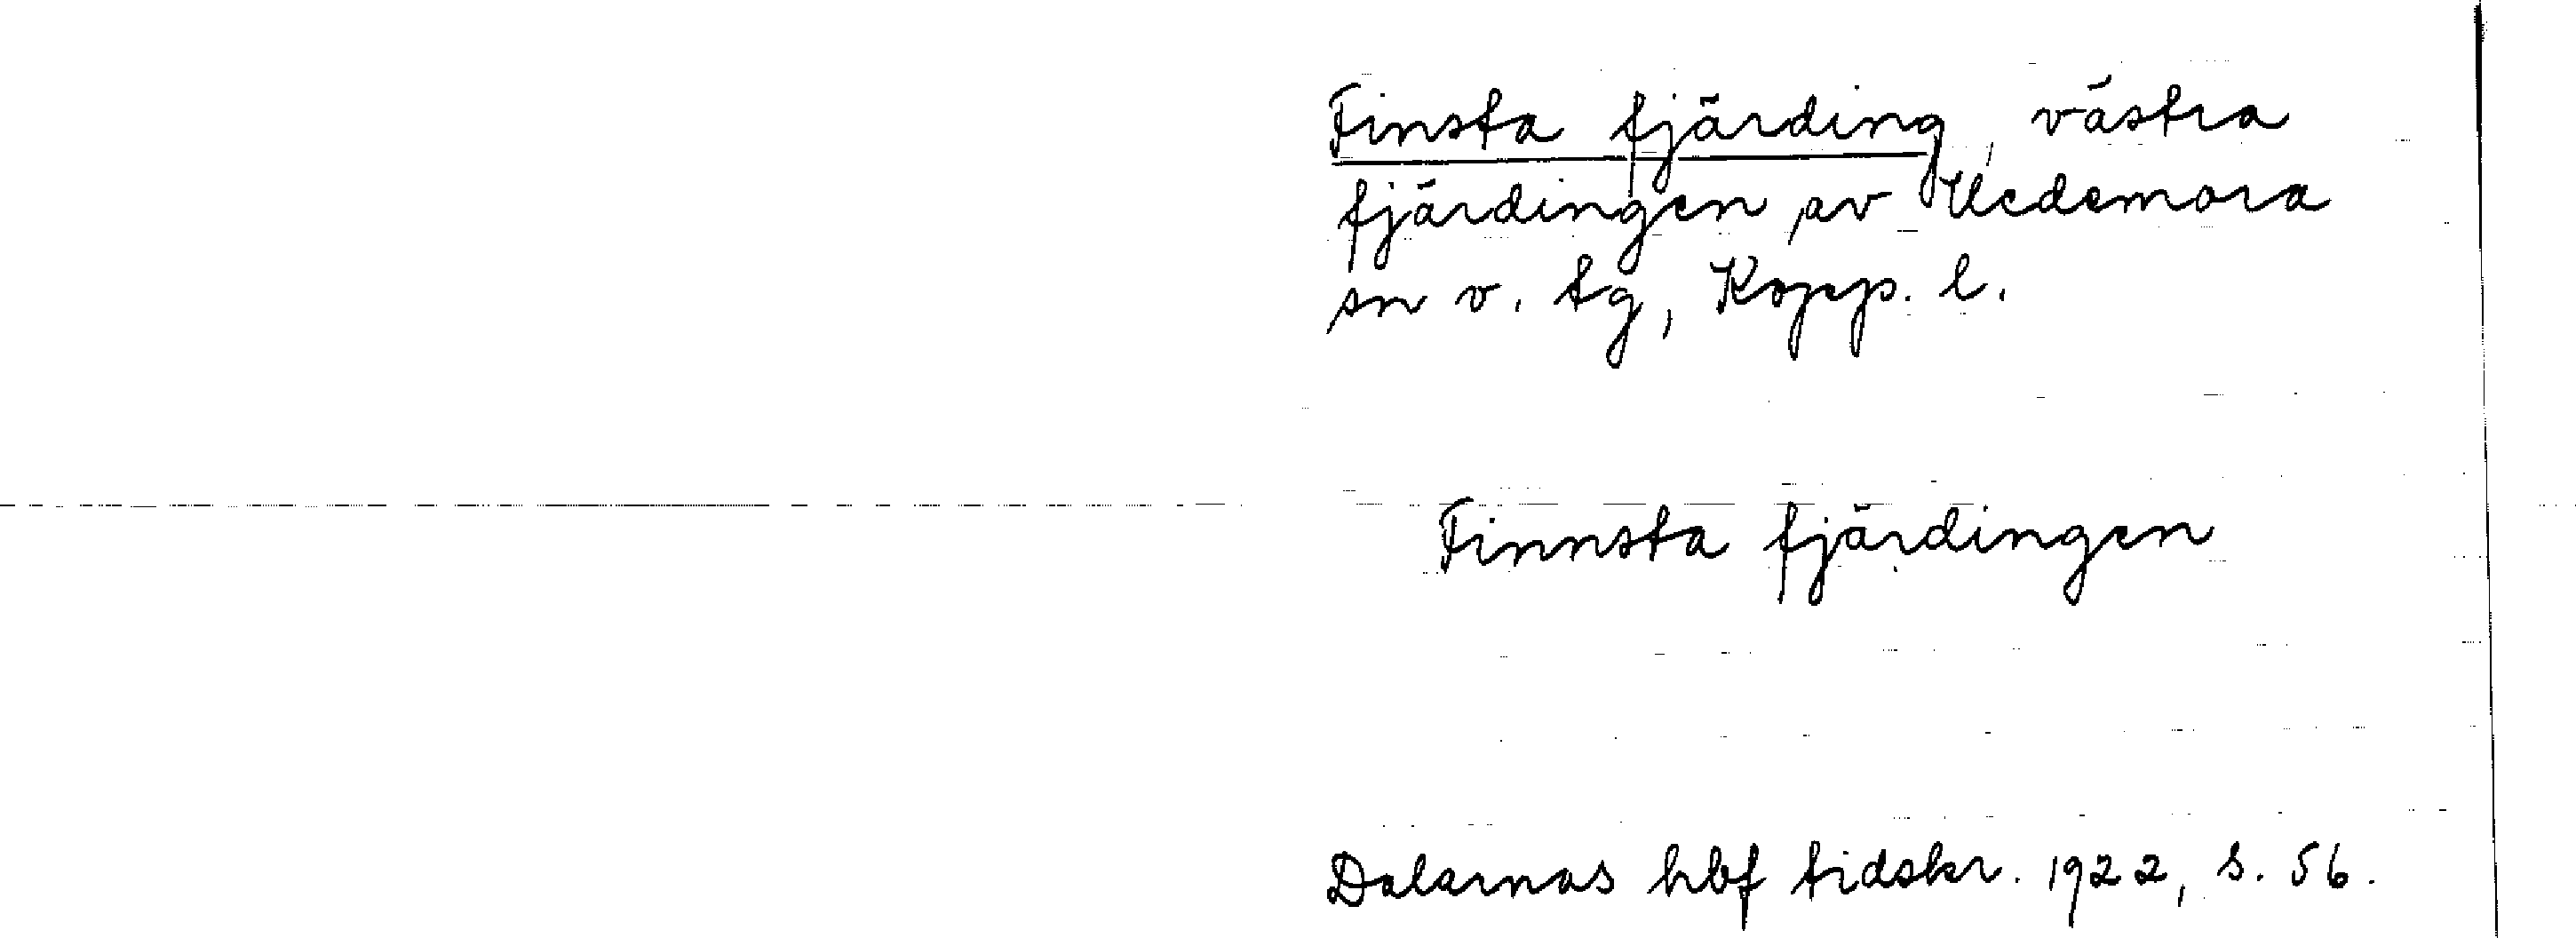 Finsta fjärding, västra
fjärdingen av Hedemora
sn v. tg, Kopp. l.
Finnsta fjärdingen
Dalarnas hbf tidskr. 1922, s. 56.